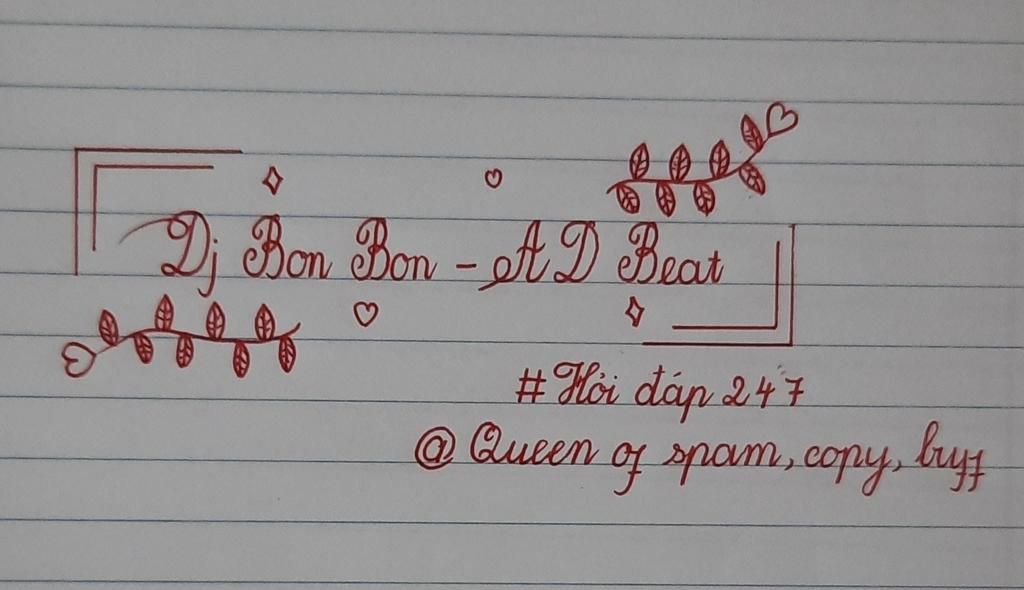 Dj Bon Bon - AD Beat
# Hỏi đáp 247
@ Queen of spam, copy, buff